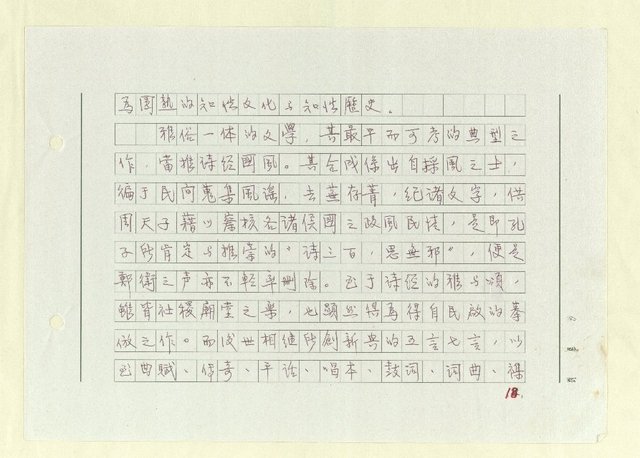 為圓熟的知性文化与知性歷史.
雅俗一体的文學,其最早而可考的典型之
作,當推诗经國風。其合成係出自採風之士,
徧于民间蒐集風谣,去蕪存菁,纪诸文字,供
周天子藉以察核各諸侯國之政風民情,是即孔
子所肯定与推崇的"诗三百,思無邪",便是
鄭衛之声亦不輕率刪除。至于诗经的雅与頌,
雖皆社稷廟堂之樂,也顯然得自民的摹
仿之作。而後世相继所創新興的五言七言,以
至曲賦、传奇、平话、唱本、鼓词、词曲、
18.